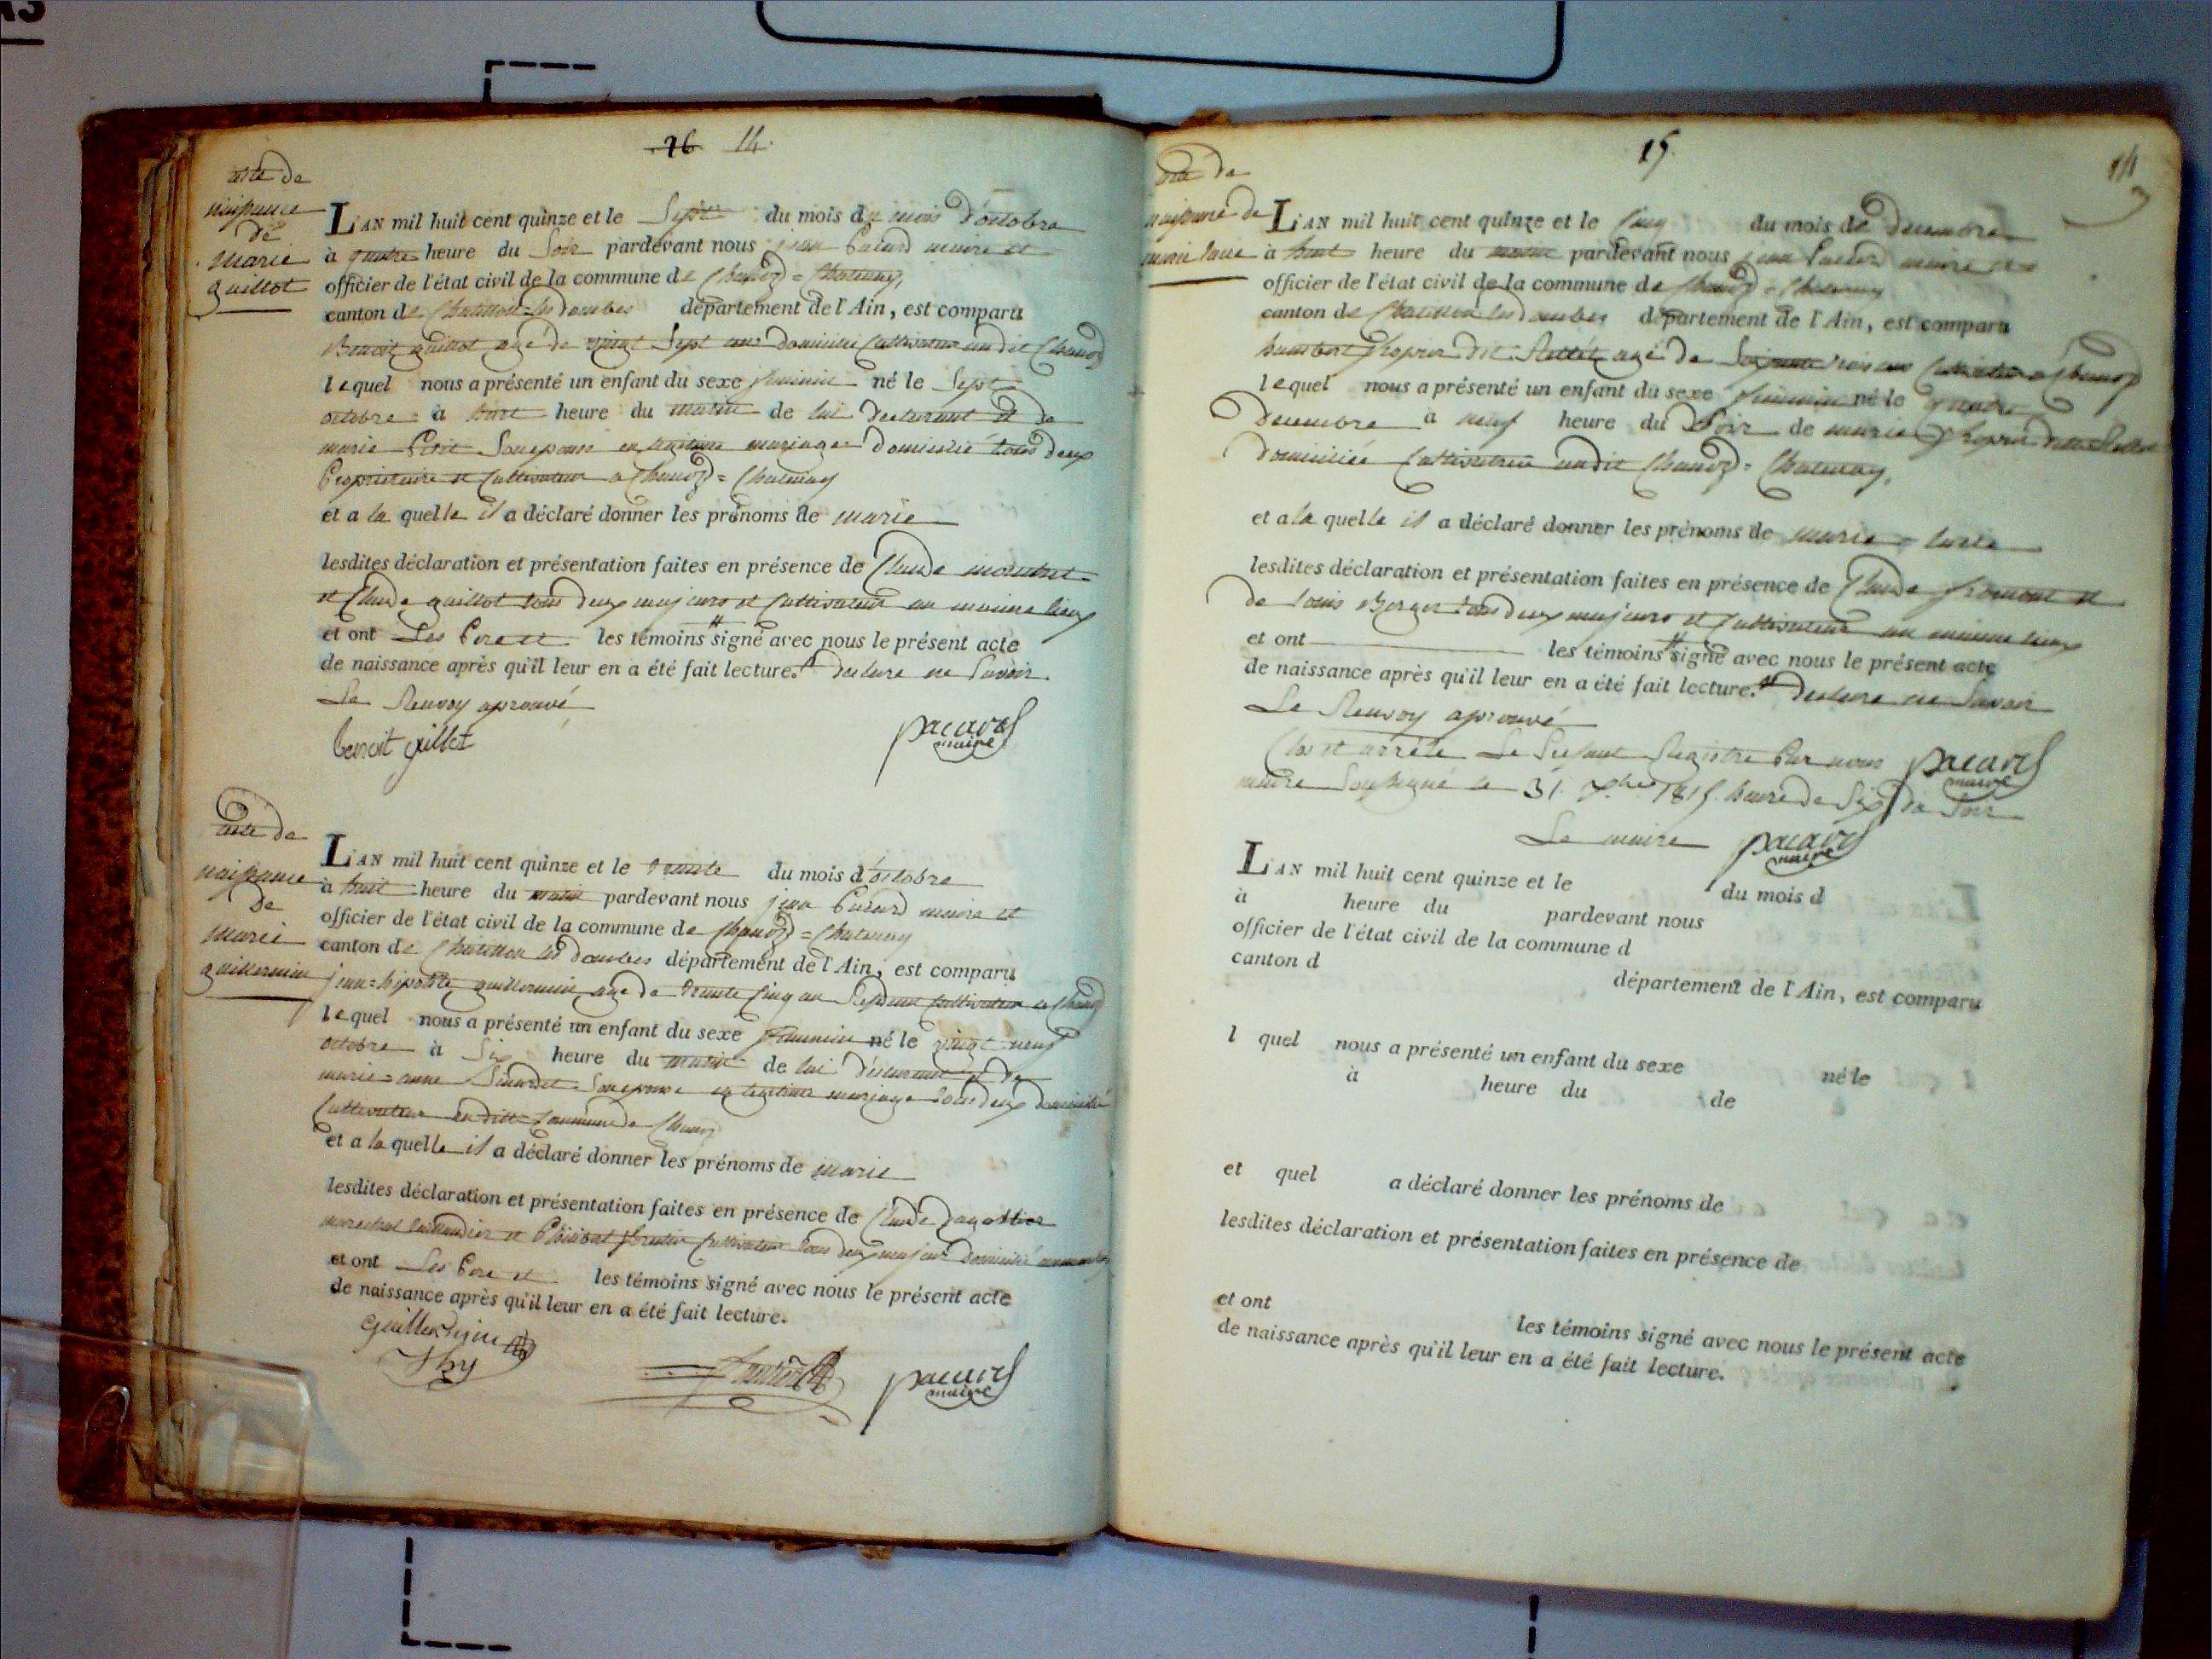 A3
76 14.
acte de
naissance
de
marie
guillot
L'AN mil huit cent quinze et le Sept du mois du mois d'octobre
à quatre heure du Soir pardevant nous jean Pacard maire et
officier de l'état civil de la commune de Chanoz=Chatenay,
canton de Chatillon=les dombes département de l'Ain, est comparu
Benoit guillot agé de vingt Sept ans domicilié Cultivateur au dit Chanoz
lequel nous a présenté un enfant du sexe feminin né le Sept
octobre à huit heure du matin de lui declarant et de
marie Son epouse en legitime mariage domicilié tous deux
Proprietaire et Cultivateur a Chanoz=Chatenay
et a la quelle il a déclaré donner les prénoms de marie
lesdites déclaration et présentation faites en présence de Claude
et Claude guillot tous deux majeurs et Cultivateur au meme lieux
et ont Les Pere et les témoins # signé avec nous le présent acte
de naissance après qu'il leur en a été fait lecture. # declare ne Savoir.
Le Renvoy aprouvé
benoit guillot
pacard
maire
acte de
naissance
de
marie
guillermin
L'AN mil huit cent quinze et le trente du mois d'octobre
à huit heure du matin pardevant nous jean Pacard maire et
officier de l'état civil de la commune de Chanoz=Chatenay
canton de Chatillon les dombes département de l'Ain, est comparu
jean=hipolite guillermin agé de trente cinq an Cultivateur a Chanoz
lequel nous a présenté un enfant du sexe feminin né le vingt neuf
octobre à Six heure du matin de lui déclarant et de
marie=anne Son epouse en legitime mariage tous deux domicilié
Cultivateur en ditte Commune de Chanoz
et a la quelle il a déclaré donner les prénoms de marie
lesdites déclaration et présentation faites en présence de Claude
marechal et Cultivateur tous deux majeurs domicilié
et ont Les Pere et les témoins signé avec nous le présent acte
de naissance après qu'il leur en a été fait lecture.
pacard
maire
15.
14
acte de
naissance de
marie
L'AN mil huit cent quinze et le Cinq du mois de decembre
à huit heure du matin pardevant nous jean Pacard maire et
officier de l'état civil de la commune de Chanoz=Chatenay
canton de Chatillon les dombes département de l'Ain, est comparu
humbert dit agé de Soixante trois ans Cultivateur a Chanoz
lequel nous a présenté un enfant du sexe feminin né le quatre
decembre à neuf heure du Soir de marie
domiciliée Cultivatrice au dit Chanoz=Chatenay,
et a la quelle il a déclaré donner les prénoms de marie
lesdites déclaration et présentation faites en présence de Claude froment et
de louis Berger tous deux majeurs et Cultivateur au meme lieux
et ont les témoins # signé avec nous le présent acte
de naissance après qu'il leur en a été fait lecture. # declare ne Savoir
Le Renvoy aprouvé
Clos et arrêté Le Présent Registre Par nous
maire Soussigné le 31. Xbre 1815. heure de Six du Soir
pacard
maire
Le maire pacard
maire
L'AN mil huit cent quinze et le du mois d
à heure du pardevant nous
officier de l'état civil de la commune d
canton d
département de l'Ain, est comparu
l quel nous a présenté un enfant du sexe né le
à heure du de
et quel a déclaré donner les prénoms de
lesdites déclaration et présentation faites en présence de
et ont
les témoins signé avec nous le présent acte
de naissance après qu'il leur en a été fait lecture.